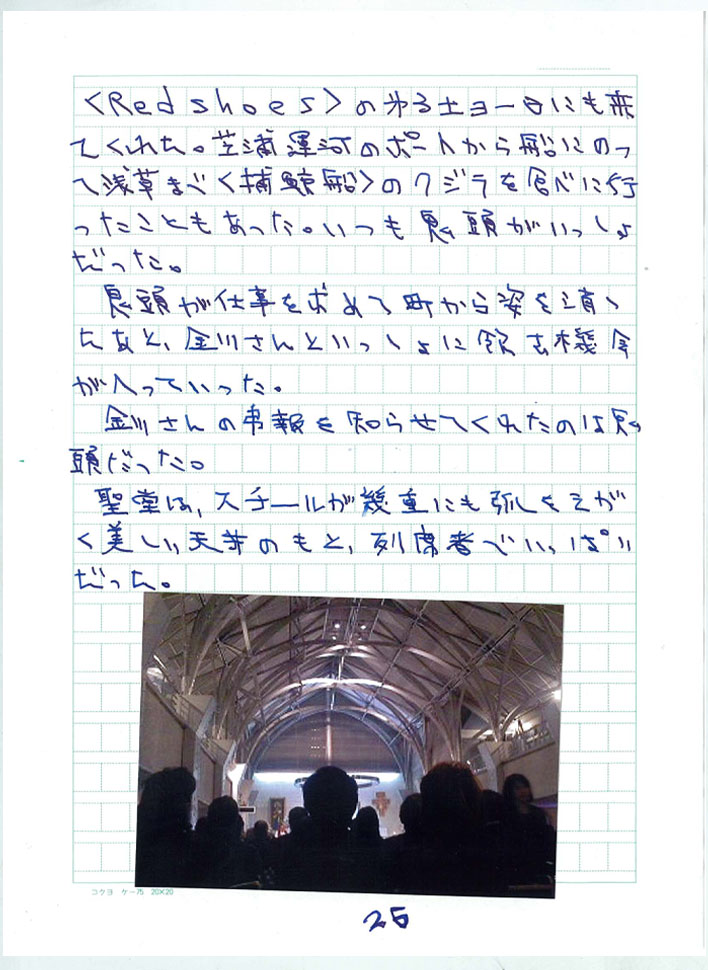 〈Red shoes〉の
にも来
てくれた。芝浦運河のボートから船にのっ
て浅草まで〈捕鯨船〉のクジラを食べに行
ったこともあった。いつも 頭がいっしょ
だった。
頭が仕事を求めて町から姿を消し
たあと、金川さんといっしょに飲む機会
が入っていった。
金川さんの 報を知らせてくれたのは
頭だった。
聖堂は、スチールが幾重にも弧をえが
く美しい天井のもと、列席者でいっぱい
だった。
コクヨ ケー75 20×20
25